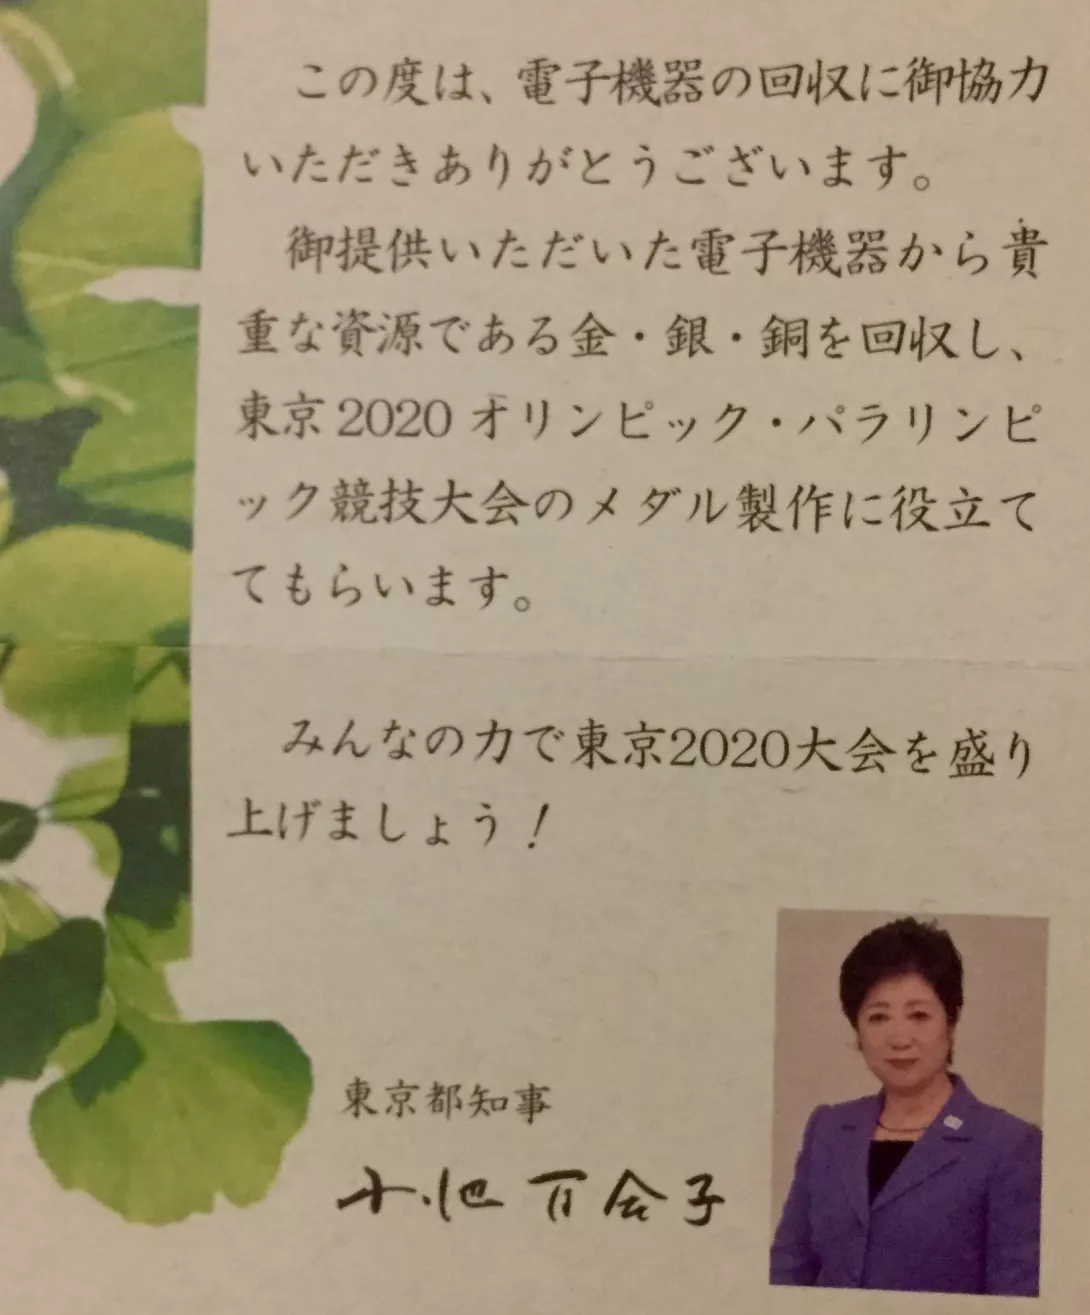 この度は、電子機器の回収に御協力
いただきありがとうございます。
御提供いただいた電子機器から貴
重な資源である金・銀・銅を回収し、
東京2020 オリンピック・パラリンピ
ック競技大会のメダル製作に役立て
てもらいます。
みんなの力で東京2020大会を盛り
上げましょう!
東京都知事
小池 百合子